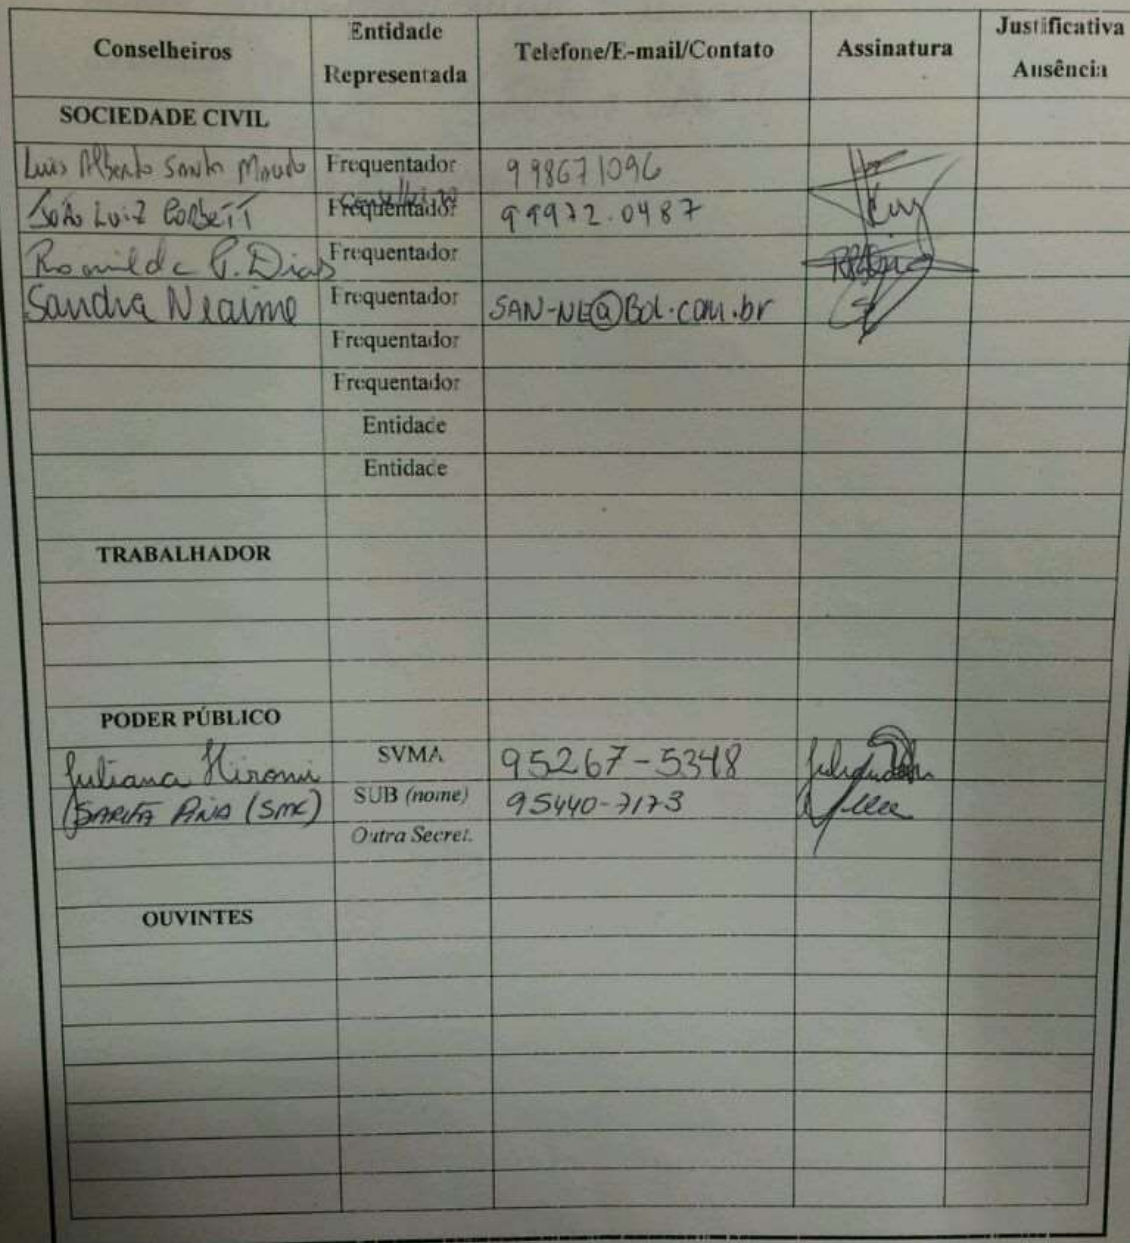 Conselheiros Entidade Representada Telefone/E-mail/Contato Assinatura Justificativa Ausência
SOCIEDADE CIVIL
Luis Alberto Santos Frequentador 998671096
João Luiz Corbett Conselheiro Frequentador 99972.0487
Romilda P. Dias Frequentador
Sandra Neaime Frequentador SAN-NE@BOL.com.br
Frequentador
Frequentador
Entidade
Entidade
TRABALHADOR
PODER PÚBLICO
Juliana Hiromi SVMA 95267-5348
SARITA PINA (SMC) SUB (nome) 95440-7173
Outra Secret.
OUVINTES